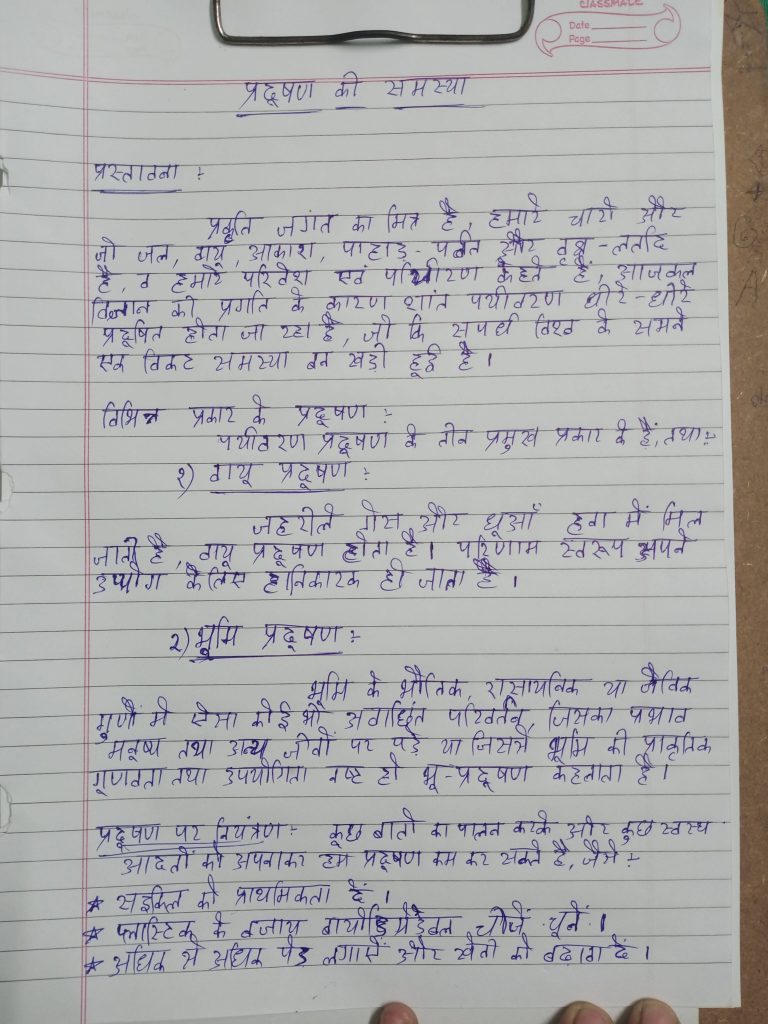 CLASSMATE
Date
Page
प्रदूषण की समस्या
प्रस्तावना :-
प्रकृति जगंत का मित्र है, हमारे चारो और
जो जल, वायू, आकाश, पाहाड़-पर्वत और वृक्ष-लतादि
है, व हमारे परिवेश एवं पर्यावरण कहते हैं, आजकल
विज्ञान की प्रगति के कारण शांत पर्यावरण धीरे-धीरे
प्रदूषित होता जा रहा है, जो कि विश्व के समने
एक विकट समस्या बन खड़ी हूई है।
विभिन्न प्रकार के प्रदूषण :-
पर्यावरण प्रदूषण के तीन प्रमुख प्रकार के हैं, तथा:-
१) वायू प्रदूषण :-
जहरीले गेस और धूआँ हवा में मिल
जाती है, वायू प्रदूषण होता है। परिणाम स्वरूप अपने
उपयोग केलिए हानिकारक हो जाता है।
२) भूमि प्रदूषण :-
भूमि के भौतिक, रासायनिक या जैविक
गुणों मे ऐसा कोई भी अवांछित परिवर्तन, जिसका प्रभाव
मनूष्य तथा अन्य जीवों पर पड़े या जिससे भूमि की प्राकृतिक
गूणवता तथा उपयोगिता नष्ट हो भू-प्रदूषण कहलाता है।
प्रदूषण पर नियंत्रण :- कूछ बातो का पालन करके और कुछ स्वस्थ
आदतों को अपनाकर हम प्रदूषण कम कर सकते है, जैसे :-
* सइकिल को प्राथमिकता दें।
* प्लास्टिक के बजाय बायोडिग्रेडेबल चीजें चूनें।
* अधिक से अधिक पेड़ लगाएँ और खेती को बढ़ावा दें।